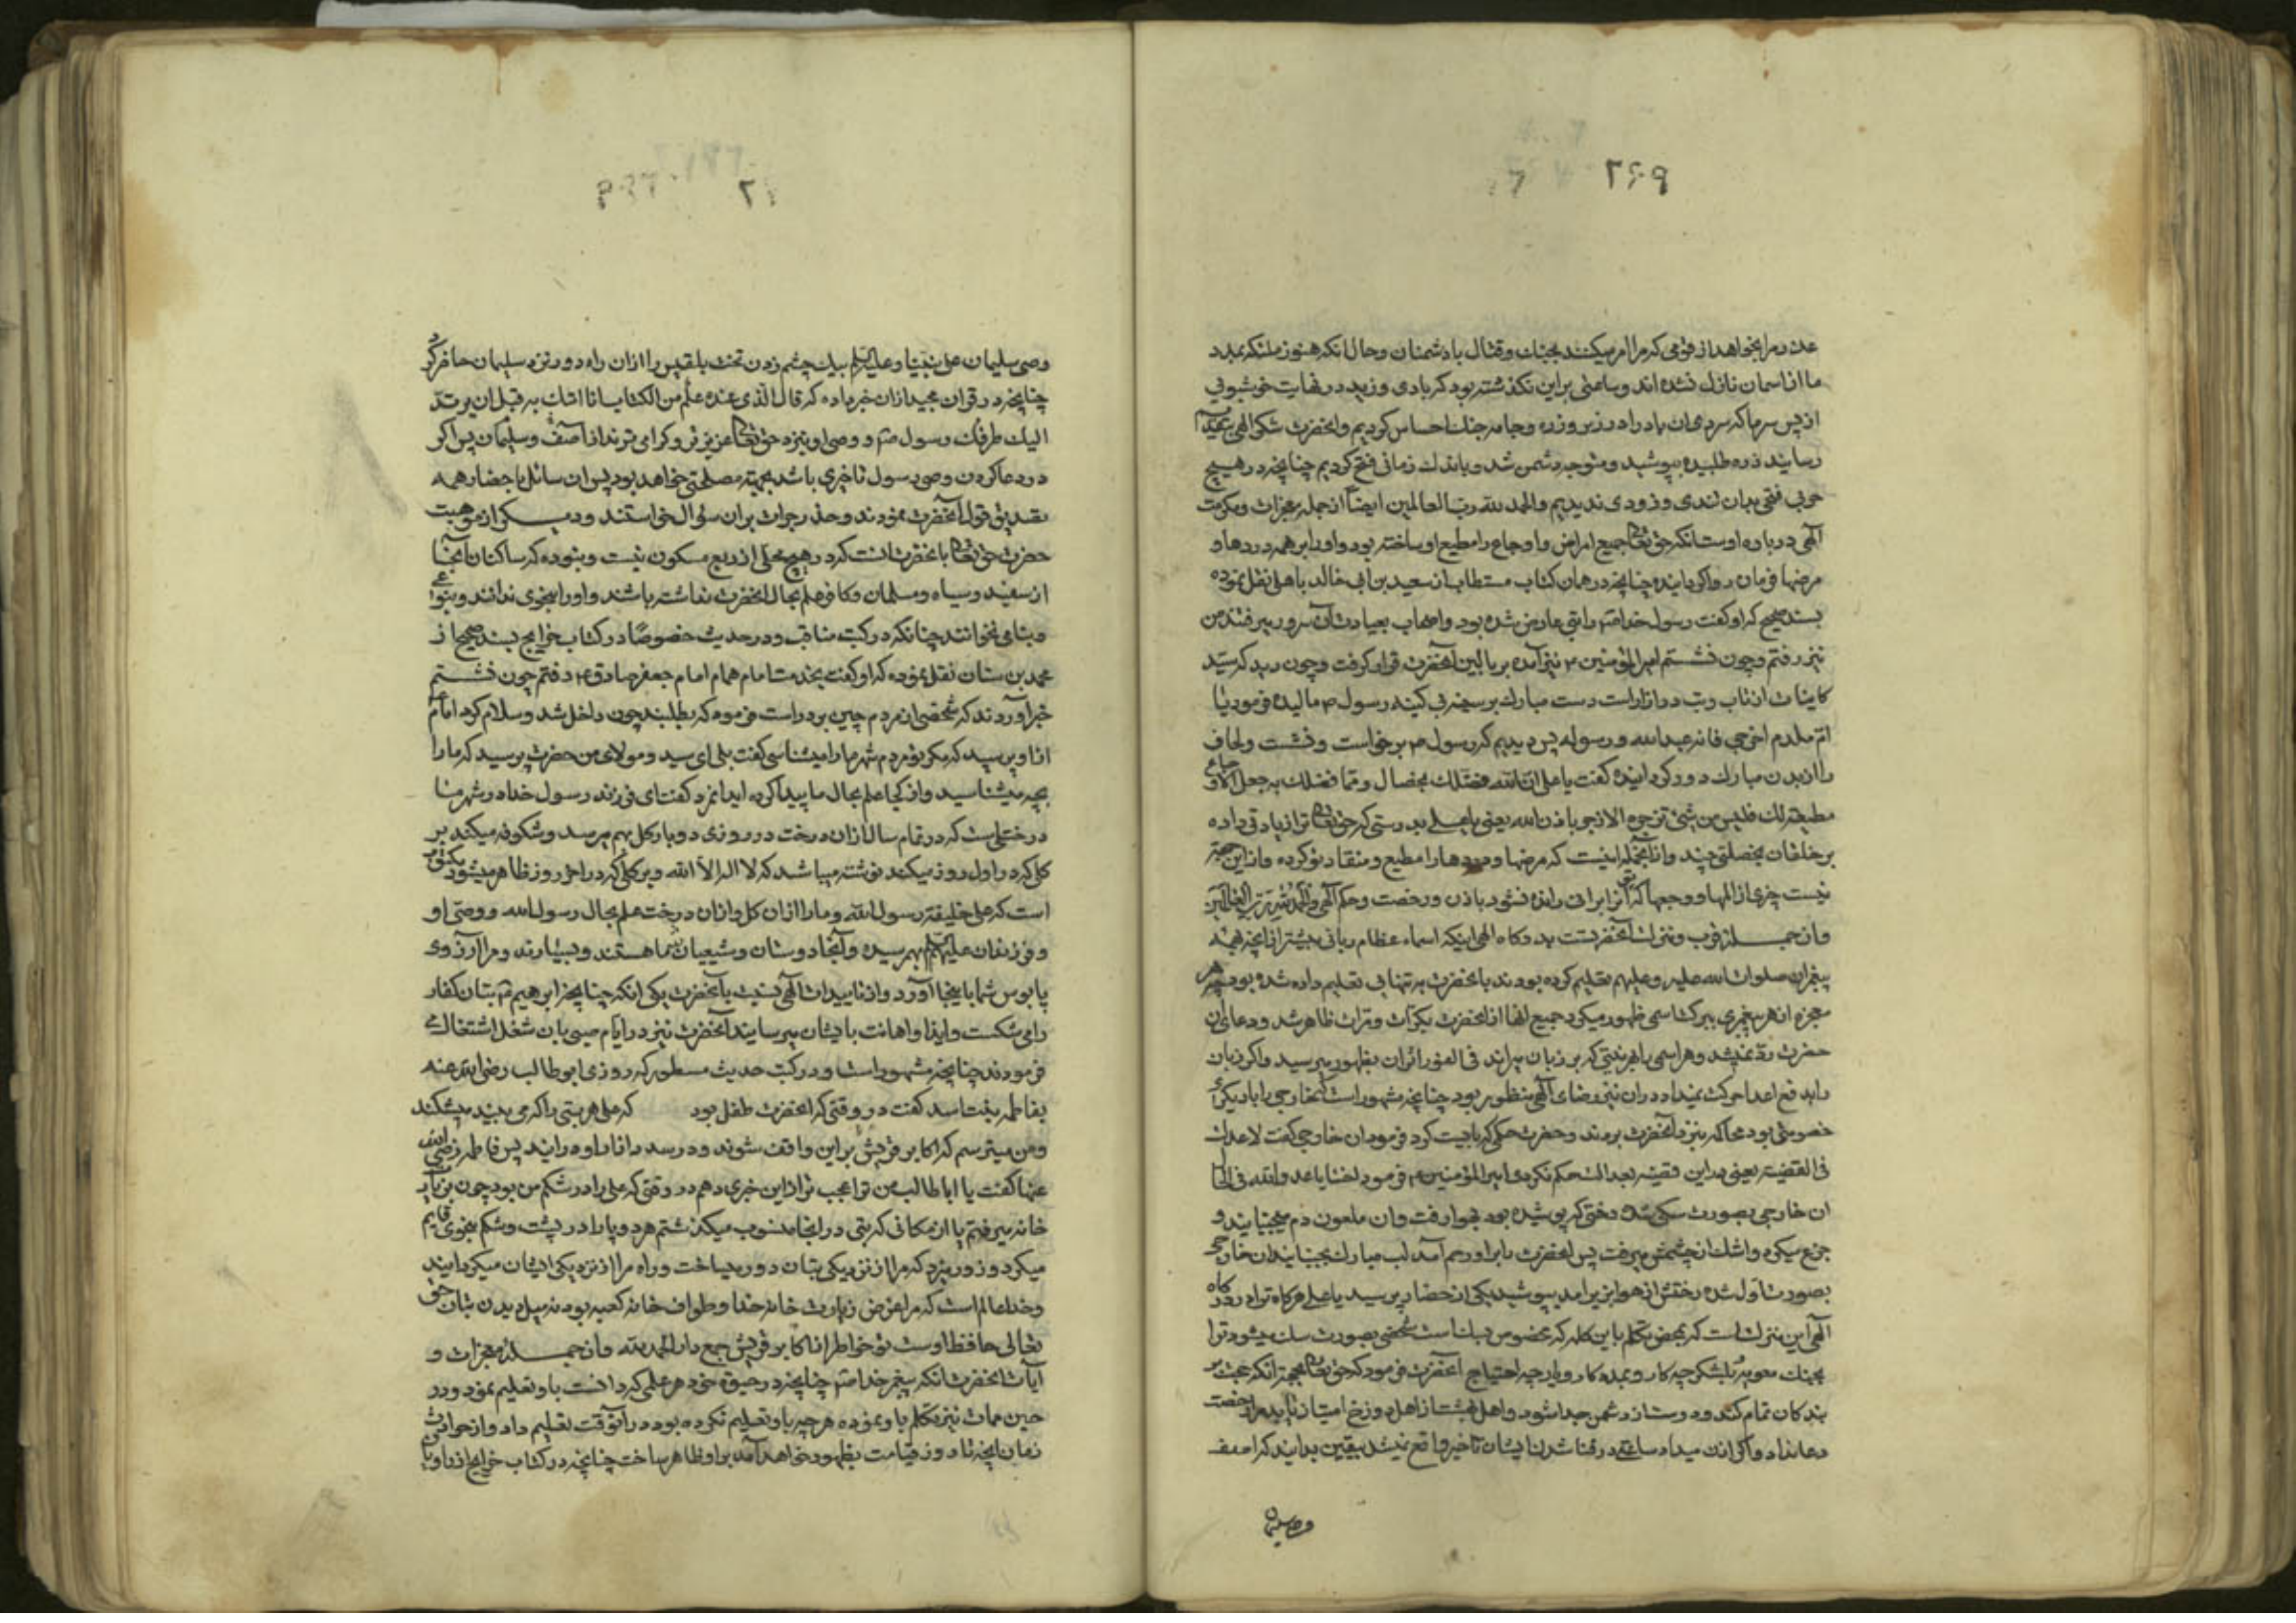 ۲۶۹
عذر مرا بخواهد از قومی که مرا امر میکنند بجنك و قتال با دشمنان و حال انکه هنوز ملئکه بمدد
ما از اسمان نازل نشده اند و ساعتی براین نکذشته بود که بادی وزید در نهایت خوشبوئی
از پس سر ما که سردی ان باد را در زیر زره و جامه جنك احساس کردیم و انحضرت شکر الهی بتقدیم
رسانید زره طلبیده بپوشید و متوجه دشمن شد و باندك زمانی فتح کردیم چنانچه در هیچ
حربی فتحی بدان تندی و زودی ندیدیم والحمد لله رب العالمین ایضاً از جمله معجزات و مکرمت
الهی درباره اوست انکه حق تعالی جمیع امراض و اوجاع را مطیع او ساخته بود و او را بر همه دردها و
مرضها فرمان روا کردانیده چنانچه در همان کتاب مستطاب از سعید بن ابی خالد باهلی نقل نموده
بسند صحیح که او کفت رسول خدا ص را تبی عارض شده بود و اصحاب بعیادت آن سرور میرفتند من
نیز رفتم و چون نشستم امیر المؤمنین ع نیز آمده بر بالین آنحضرت قرار کرفت و چون دید که سید
کاینات از تاب تب در ازار است دست مبارك بر سینه بی کینه رسول ص مالیده فرمود یا
ام ملدم اخرجی فانه عبد الله و رسوله پس دیدیم که رسول ص برخواست و نشست و لحاف
را از بدن مبارك دور کردانیده کفت یا علی ان الله فضلك بخصال و مما فضلك به جعل الاوجاع
مطیعة لك فلیس من شیء تزجره الا انزجر باذن الله یعنی یا علی بدرستی که حق تعالی ترا زیادتی داده
بر خلقان بخصلتی چند و از آنجمله اینست که مرضها و دردها را مطیع و منقاد تو کرده و از این جهة
نیست چیزی از المها و وجعها که تو انرا برانی و رانده نشود باذن و رخصت و حکم الهی والحمد لله رب العالمین
و از جمله قرب و منزلت آنحضرتست بدرکاه الهی اینکه اسماء عظام ربانی بیشتر از آنچه همه
پیغمبران صلوات الله علیه و علیهم تعلیم کرده بودند بانحضرت به تنهایی تعلیم داده شده بود چه هر
معجزه از هر پیغمبری ببرکت اسمی ظهور میکرد جمیع انها از انحضرت بکرات و مرات ظاهر شد و دعای ان
حضرت رد نمیشد و هر اسمی را بهر نیتی که بر زبان میراند فی الفور اثر ان بظهور میرسید و اکر زبان
را بدفع اعدا حرکت نمیداد در ان نیز رضای الهی منظور بود چنانچه مشهور است که خارجی را با دیکری
خصومتی بود محاکمه بنزد آنحضرت بردند و حضرت حکمی که بایست کرد فرمود ان خارجی کفت لا عدلت
فی القضیة یعنی در این قضیه بعدالت حکم نکردی امیر المؤمنین ع فرمود اخسا یا عدو الله فی الحال
ان خارجی بصورت سکی شد و رختی که پوشیده بود بهوا رفت و ان ملعون دم میجنبانید و
جزع میکرد و اشك از چشمش میرفت پس انحضرت را بر او رحم آمد لب مبارك بجنبانید ان خارجی
بصورت اول شد و رختش از هوا بزیر امد بپوشید یکی از حضار پرسید یا علی هر کاه ترا در درکاه
الهی این منزلت است که بمحض تکلم باین کلمه که بمضمون دیکر است شخصی بصورت سك میشود ترا
بجنك معویه و لشکر چه کار و بمدد کار و یار چه احتیاج انحضرت فرمود که حق تعالی بجهة انکه حجت بر
بندکان تمام کند و دوست از دشمن جدا شود و اهل بهشت از اهل دوزخ امتیاز یابد مرا رخصت
دعا نداد و اکر اذن میداد ساعتی در فنا شدن ایشان تاخیر واقع نمیشد بیقین بدانید که اصف
وصی سلیمان
وصی سلیمان علی نبینا و علیه السلم بیك چشم زدن تخت بلقیس را از ان راه دور نزد سلیمان حاضر کرد
چنانچه در قران مجید از ان خبر داده که قال الذی عنده علم من الکتاب انا اتیك به قبل ان یرتد
الیك طرفك و رسول ص و وصی او نزد حق تعالی عزیزتر و کرامی ترند از آصف و سلیمان پس اکر
در دعا کردن وصی رسول تاخیری باشد بجهة مصلحتی خواهد بود پس ان سائل با حضار همه
تصدیق قول آنحضرت نمودند و عذر جرات بر ان سؤال خواستند و دیکر از موهبت
حضرت حق تعالی بانحضرت انست که در هیچ محلی از ربع مسکون نیست و نبوده که ساکنان آنجا
از سفید و سیاه و مسلمان و کافر علم بحال انحضرت نداشته باشند و او را بنحوی ندانند و بنوعی
و بنامی نخوانند چنانکه در کتب مناقب و در حدیث خصوصاً در کتاب خرایج بسند صحیح از
محمد بن سنان نقل نموده که او کفت بخدمت امام همام امام جعفر صادق ع رفتم چون نشستم
خبر آوردند که شخصی از مردم چین بر در است فرمود که بطلبند چون داخل شد و سلام کرد امام
از او پرسید که مکر تو مردم شهر ما را میشناسی کفت بلی ای سید و مولای من حضرت پرسید که ما را
بچه میشناسید و از کجا علم بحال ما پیدا کرده اید انمرد کفت ای فرزند رسول خدا در شهر ما
درختی است که در تمام سال از ان درخت در روزی دو بار کل بهم میرسد و شکوفه میکند بر
کلی که در اول روز میکند نوشته میباشد که لا اله الا الله و بر کلی که در اخر روز ظاهر میشود مکتوب
است که علی خلیفه رسول الله و ما را از ان کل و از ان درخت علم بحال رسول الله و وصی او
و فرزندان علیهم السلم بهم رسیده و آنجا دوستان و شیعیان شما هستند و بسیارند و مرا آرزوی
پا بوس شما باینجا آورد و از تاییدات الهی نسبت بآنحضرت یکی انکه چنانچه ابرهیم ع بتان کفار
را می شکست و ایذا و اهانت بایشان میرسانید انحضرت نیز در ایام صبی بان شغل اشتغال می
فرمودند چنانچه مشهور است و در کتب حدیث مسطور که روزی ابوطالب رضی الله عنه
بفاطمه بنت اسد کفت در وقتی که انحضرت طفل بود که علی هر بتی را که می بیند میشکند
و من میترسم که اکابر قریش بر این واقف شوند و درصدد ازار او درایند پس فاطمه رضی الله
عنها کفت یا ابا طالب من ترا عجب تر از این خبری دهم در وقتی که علی را در شکم من بود چون بزیارت
خانه میرفتم یا از مکانی که بتی در انجا منصوب میکذشتم هر دو پا را در پشت و شکم بنحوی قایم
میکرد و زور میزد که مرا از نزدیکی بتان دور میساخت و راه مرا از نزدیکی ایشان میکردانید
و خدا عالم است که مرا غرض زیارت خانه خدا و طواف خانه کعبه بود نه میل دیدن بتان حق
تعالی حافظ اوست تو خواطر از اکابر قریش جمع دار الحمد لله و از جمله معجزات و
آیات انحضرت انکه پیغمبر خدا ص چنانچه در حیوة خود هر علمی که دانست باو تعلیم نمود و در
حین ممات نیز تکلم باو نموده هر چه باو تعلیم نکرده بود در آنوقت تعلیم داد و از حوادث
زمان انچه تا روز قیامت بظهور خواهد آمد بر او ظاهر ساخت چنانچه در کتاب خرایج از راویان